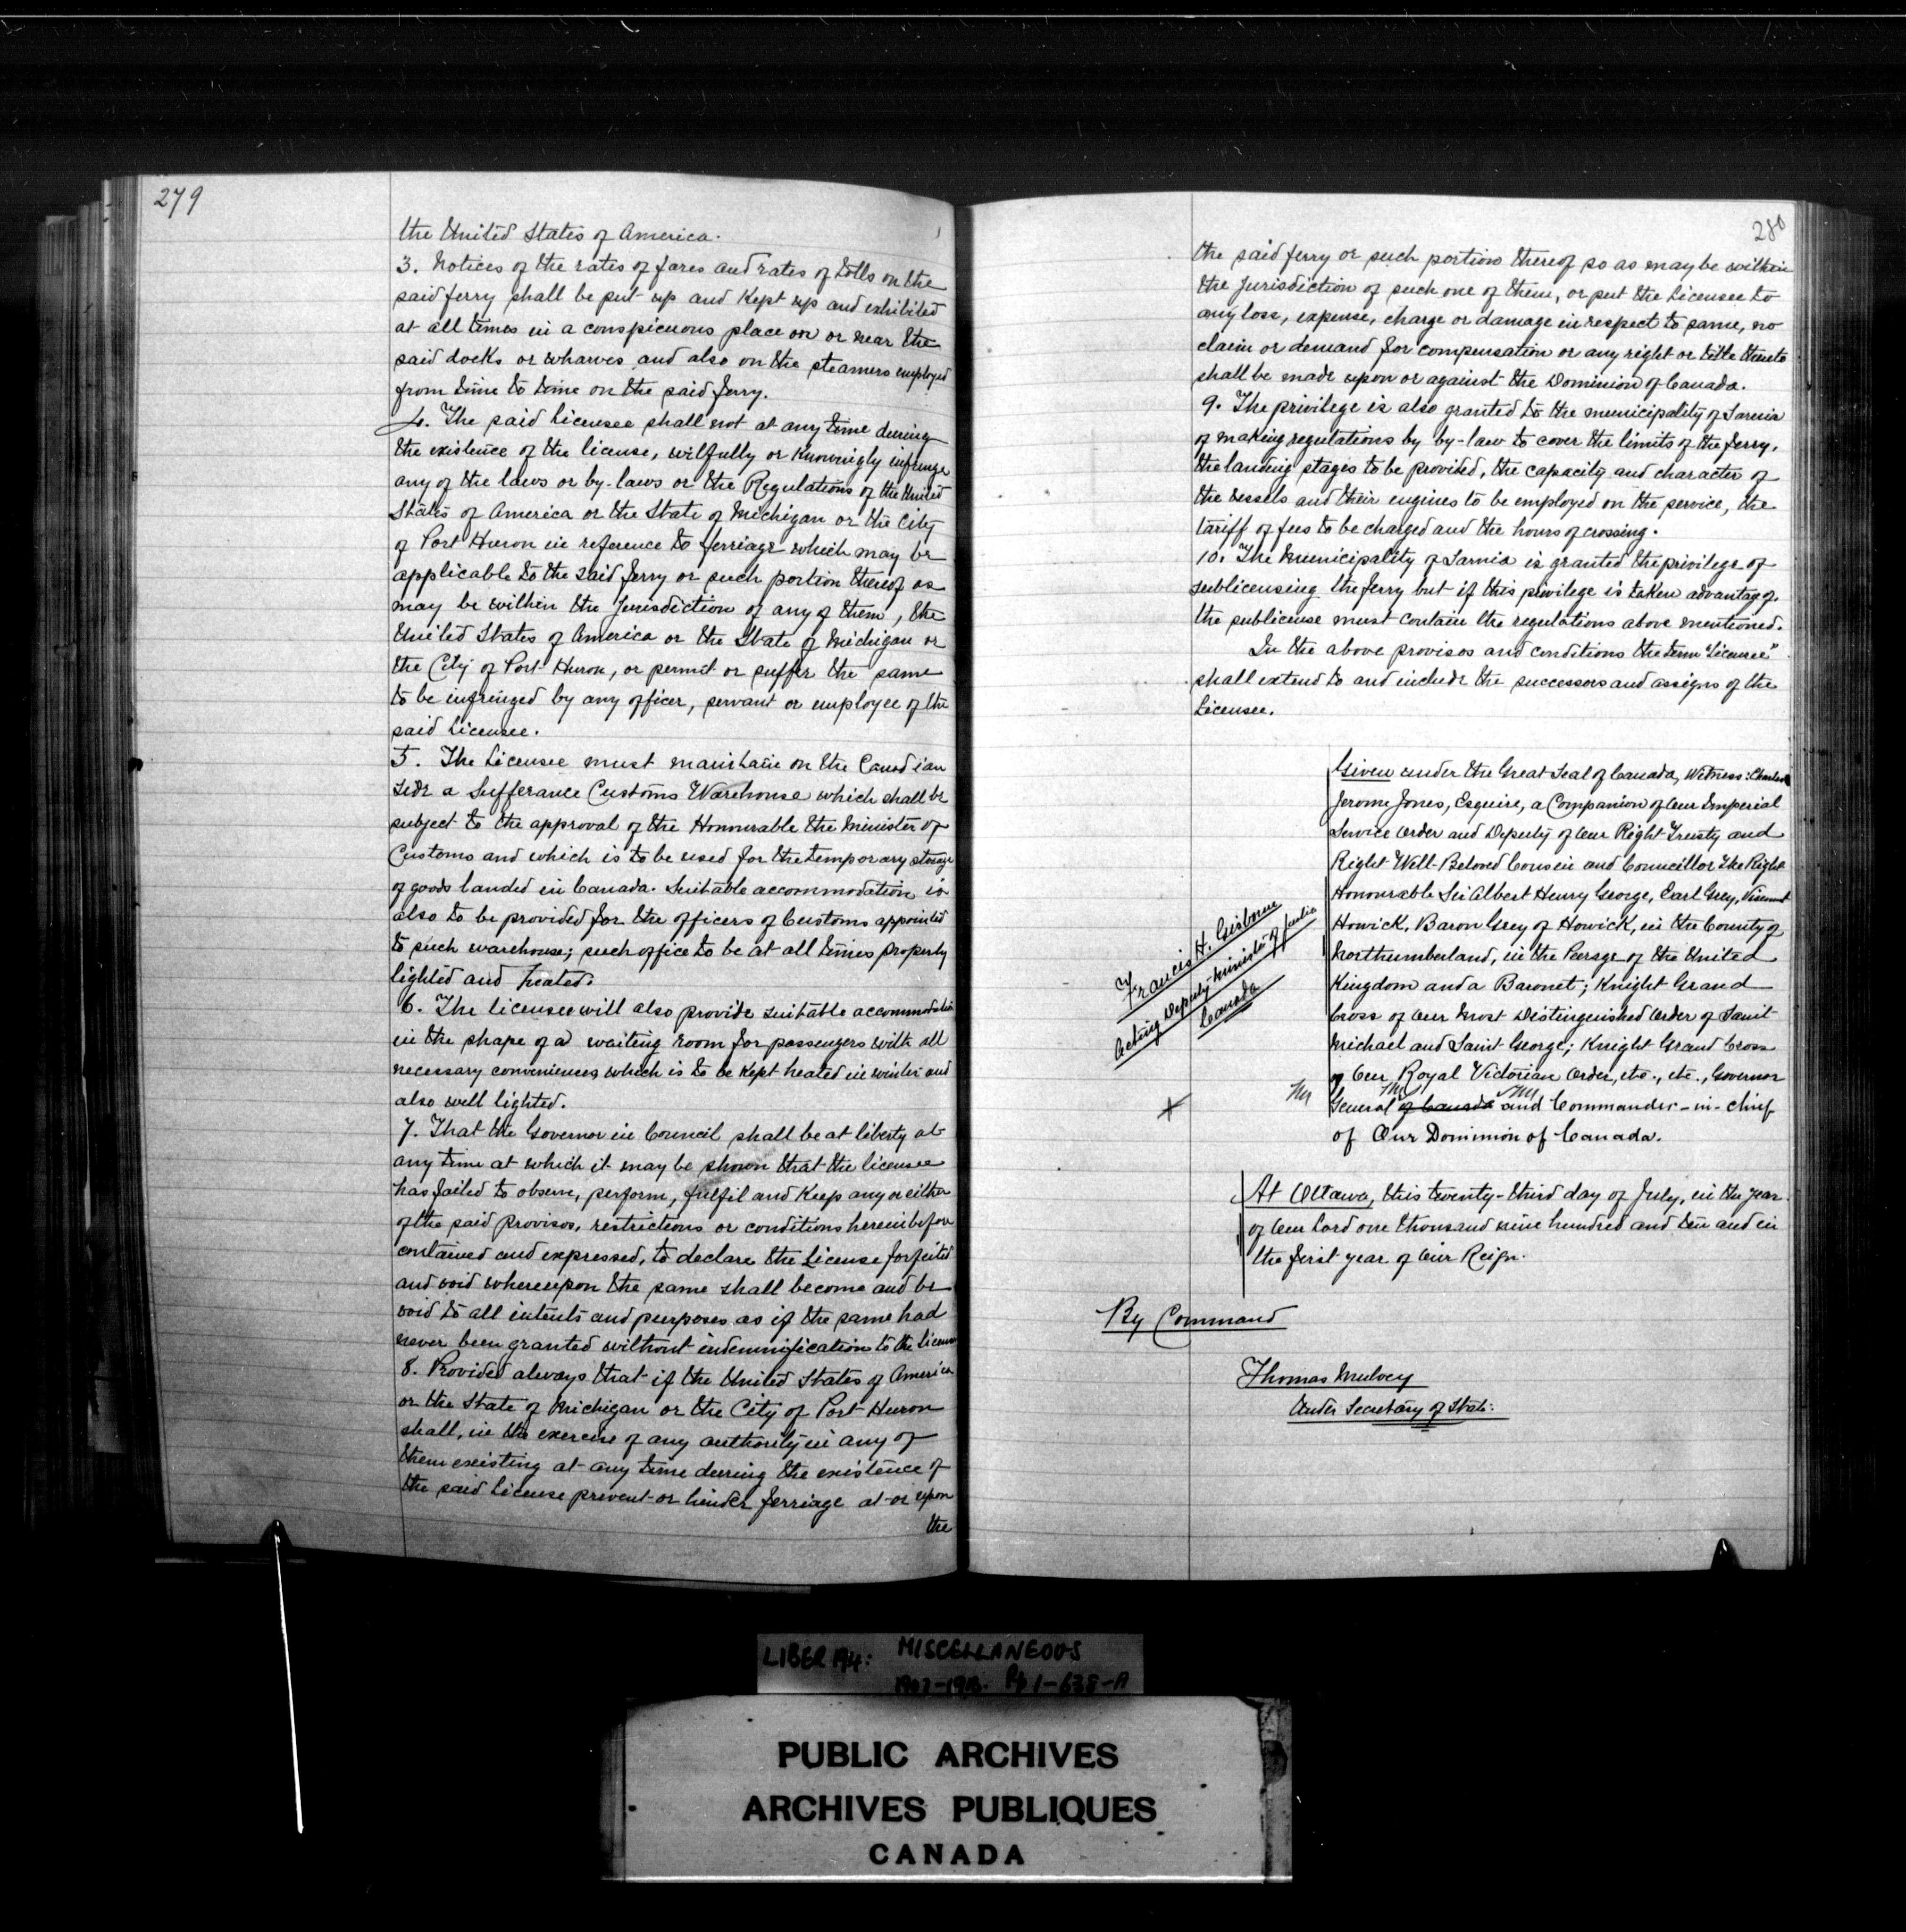 279
the United States of America.
3. Notices of the rates of fares and rates of tolls on the
said ferry shall be put up and kept up and exhibited
at all times in a conspicuous place on or near the
said docks or wharves and also on the steamers employed
from time to time on the said ferry.
4. The said Licensee shall not at any time during
the existence of the license, wilfully or knowingly infringe
any of the laws or by-laws or the Regulations of the United
States of America or the State of Michigan or the City
of Port Huron in reference to ferriage which may be
applicable to the said ferry or such portion thereof as
may be within the jurisdiction of any of them, the
United States of America or the State of Michigan or
the City of Port Huron, or permit or suffer the same
to be infringed by any officer, servant or employee of the
said Licensee.
5. The Licensee must maintain on the Canadian
side a Sufferance Customs Warehouse which shall be
subject to the approval of the Honourable the Minister of
Customs and which is to be used for the temporary storage
of goods landed in Canada. Suitable accommodation is
also to be provided for the officers of Customs appointed
to such warehouse; such office to be at all times properly
lighted and heated.
6. The licensee will also provide suitable accommodation
in the shape of a waiting room for passengers with all
necessary conveniences which is to be kept heated in winter and
also well lighted.
7. That the Governor in Council shall be at liberty at
any time at which it may be shown that the licensee
has failed to observe, perform, fulfil and keep any or either
of the said provisos, restrictions or conditions hereinbefore
contained and expressed, to declare the License forfeited
and void whereupon the same shall become and be
void to all intents and purposes as if the same had
never been granted without indemnification to the Licensee
8. Provided always that if the United States of America
or the State of Michigan or the City of Port Huron
shall, in the exercise of any authority in any of
them existing at any time during the existence of
the said License prevent or hinder ferriage at or upon
the
280
the said ferry or such portion thereof so as may be within
the jurisdiction of such one of them, or put the Licensee to
any loss, expense, charge or damage in respect to same, no
claim or demand for compensation or any right or title thereto
shall be made upon or against the Dominion of Canada.
9. The privilege is also granted to the municipality of Sarnia
of making regulations by by-law to cover the limits of the ferry,
the landing stages to be provided, the capacity and character of
the vessels and their engines to be employed on the service, the
tariff of fees to be charged and the hours of crossing.
10. The Municipality of Sarnia is granted the privilege of
sublicensing the ferry but if this privilege is taken advantage of,
the sublicense must contain the regulations above mentioned.
In the above provisos and conditions the term "Licensee"
shall extend to and include the successors and assigns of the
Licensee.
Given under the Great Seal of Canada, Witness: Charles
Jerome Jones, Esquire, a Companion of Our Imperial
Service Order and Deputy of Our Right Trusty and
Right Well-Beloved Cousin and Councillor The Right
Honourable Sir Albert Henry George, Earl Grey, Viscount
Howick, Baron Grey of Howick, in the County of
Northumberland, in the Peerage of the United
Kingdom and a Baronet; Knight Grand
Cross of Our Most Distinguished Order of Saint
Michael and Saint George; Knight Grand Cross
of Our Royal Victorian Order, etc., etc., Governor
General of Canada and Commander-in-Chief
of Our Dominion of Canada.
Francis H. Gisborne
Acting Deputy Minister of Justice
Canada
At Ottawa, this twenty-third day of July, in the year
of Our Lord one thousand nine hundred and ten and in
the first year of Our Reign.
By Command
Thomas Mulvey
Under Secretary of State.
LIBER 194: MISCELLANEOUS
1907-1913. Pg 1-638-A
PUBLIC ARCHIVES
ARCHIVES PUBLIQUES
CANADA